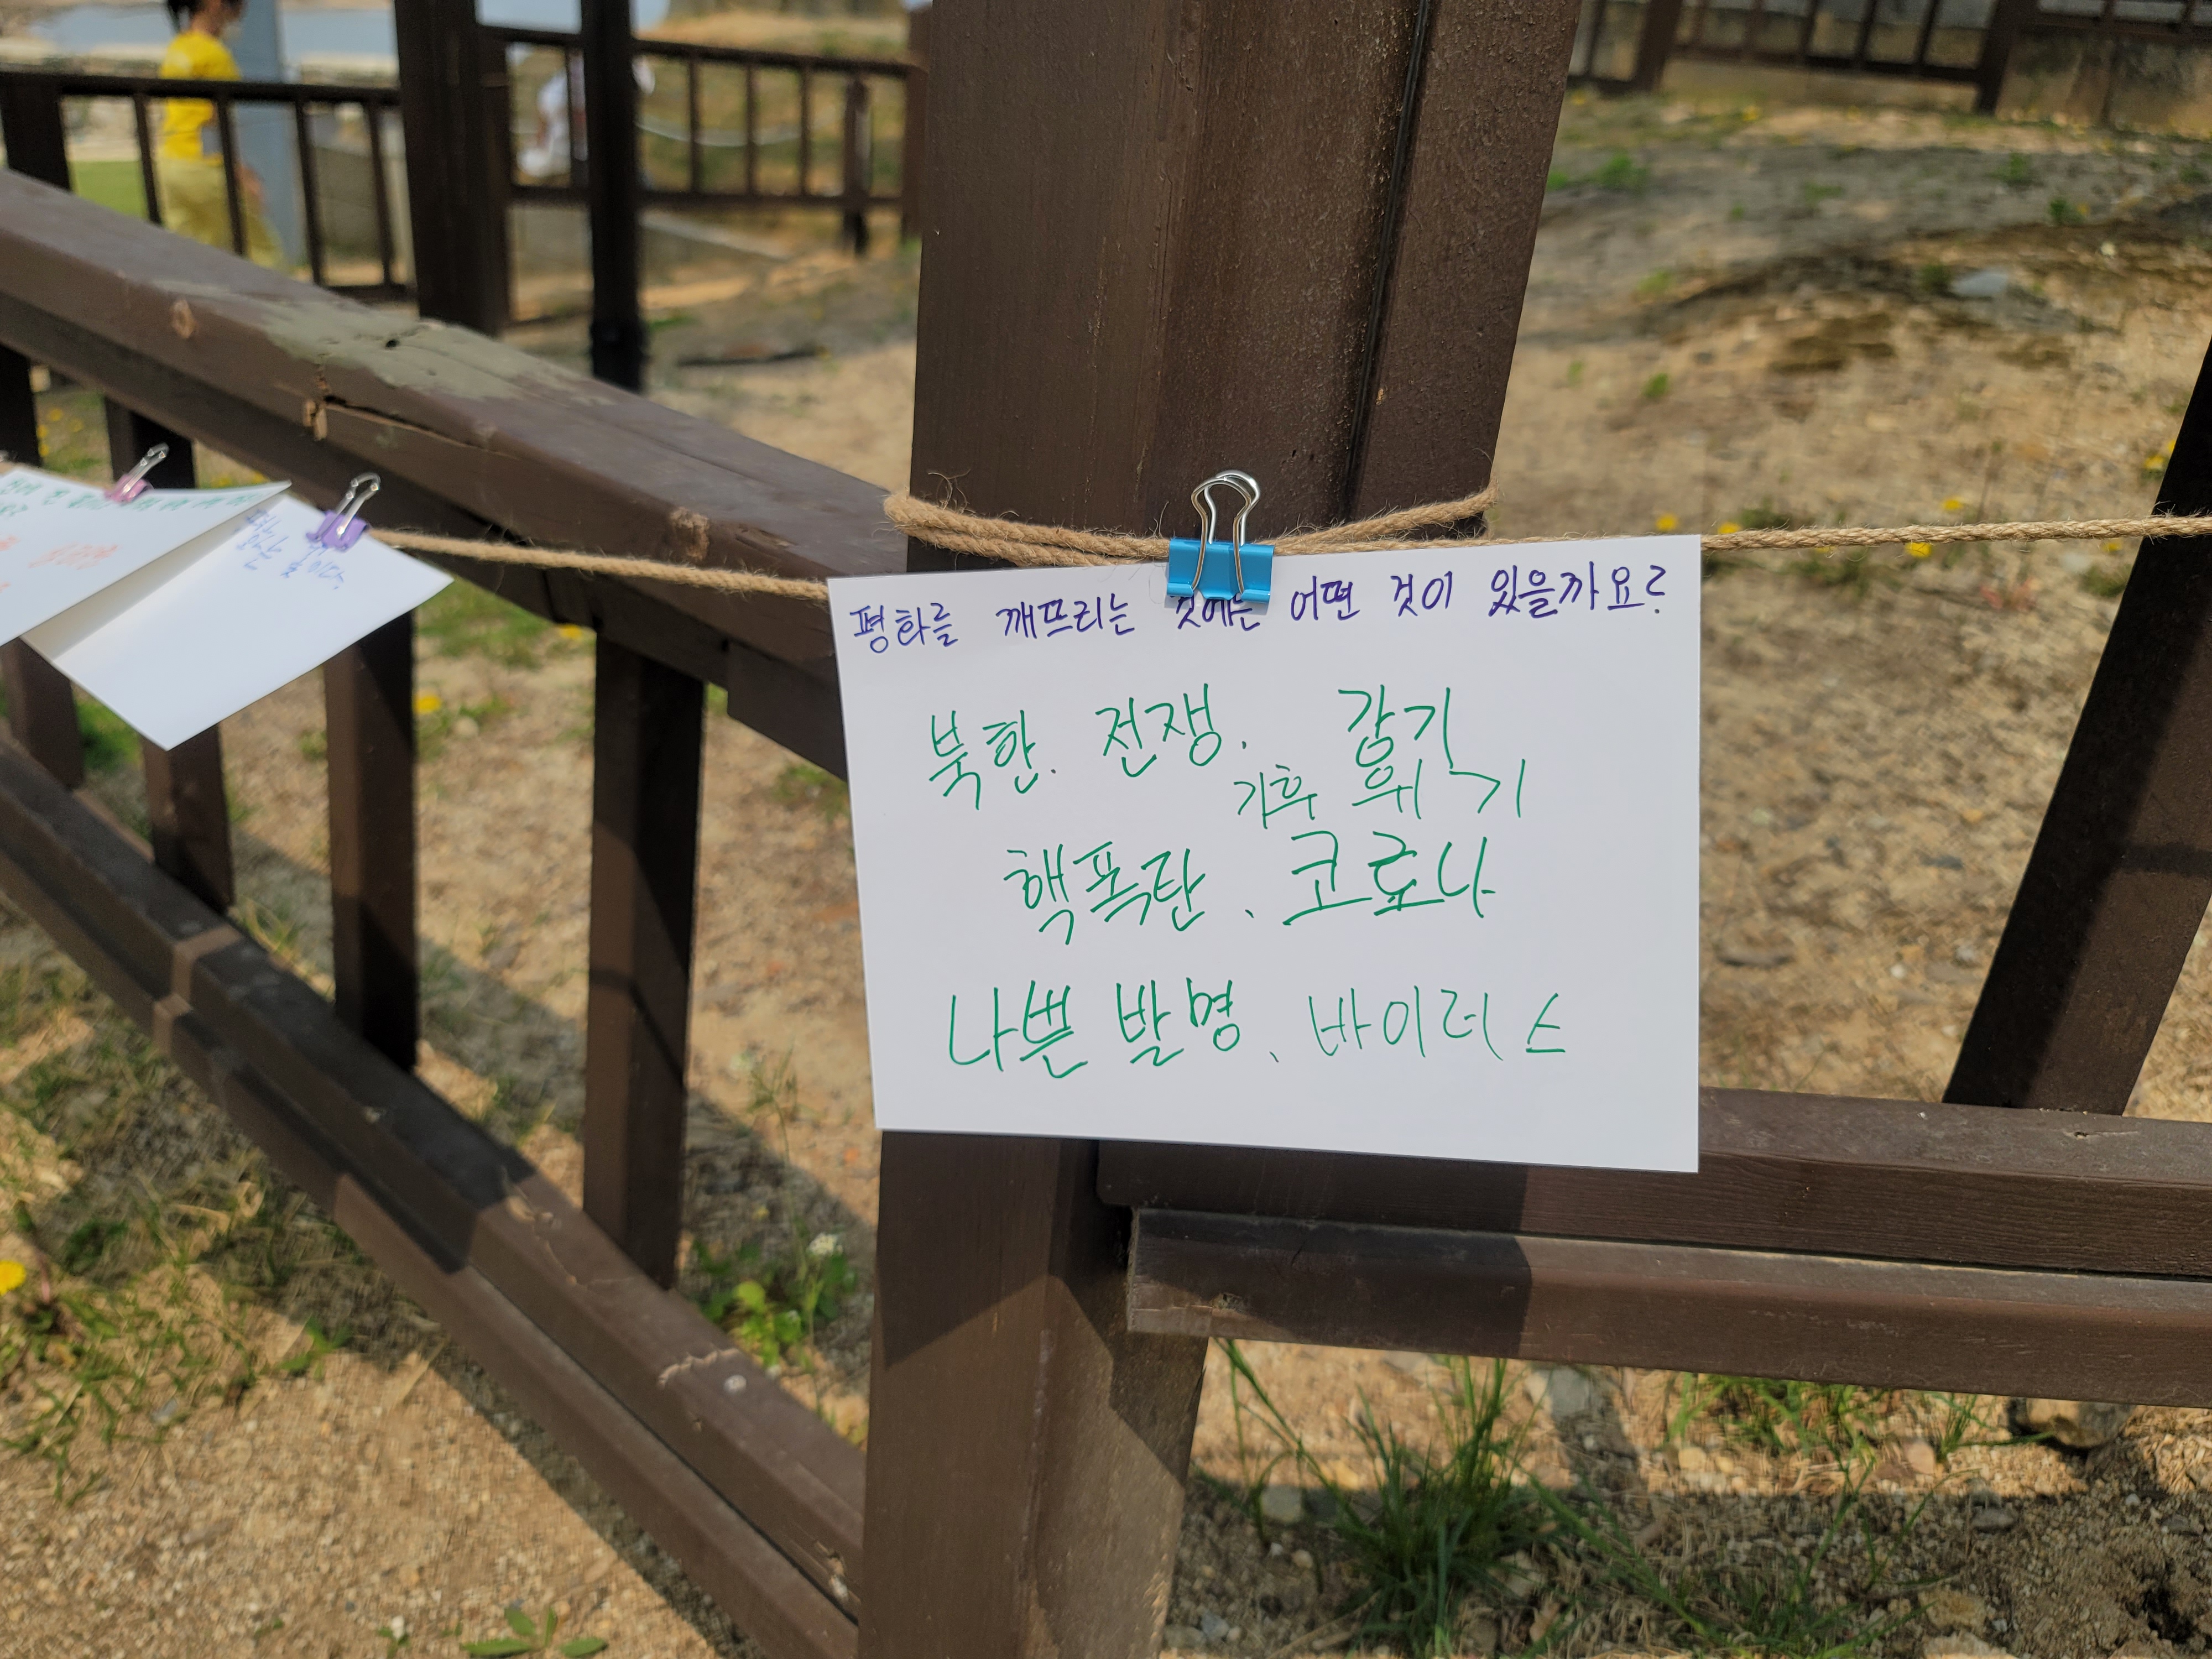 평화를 깨뜨리는 것에는 어떤 것이 있을까요?
북한. 전쟁. 감기
기후 위기
핵폭탄、코로나
나쁜 발명、바이러스